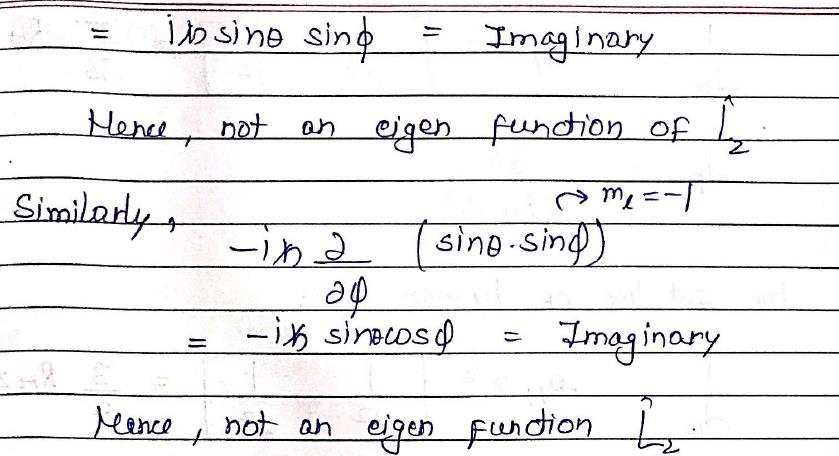 = iħ sinθ sinϕ = Imaginary
Hence, not an eigen function of L̂z.
→ mℓ = -1
Similarly, -iħ ∂/∂ϕ (sinθ·sinϕ)
= -iħ sinθcosϕ = Imaginary
Hence, not an eigen function L̂z.